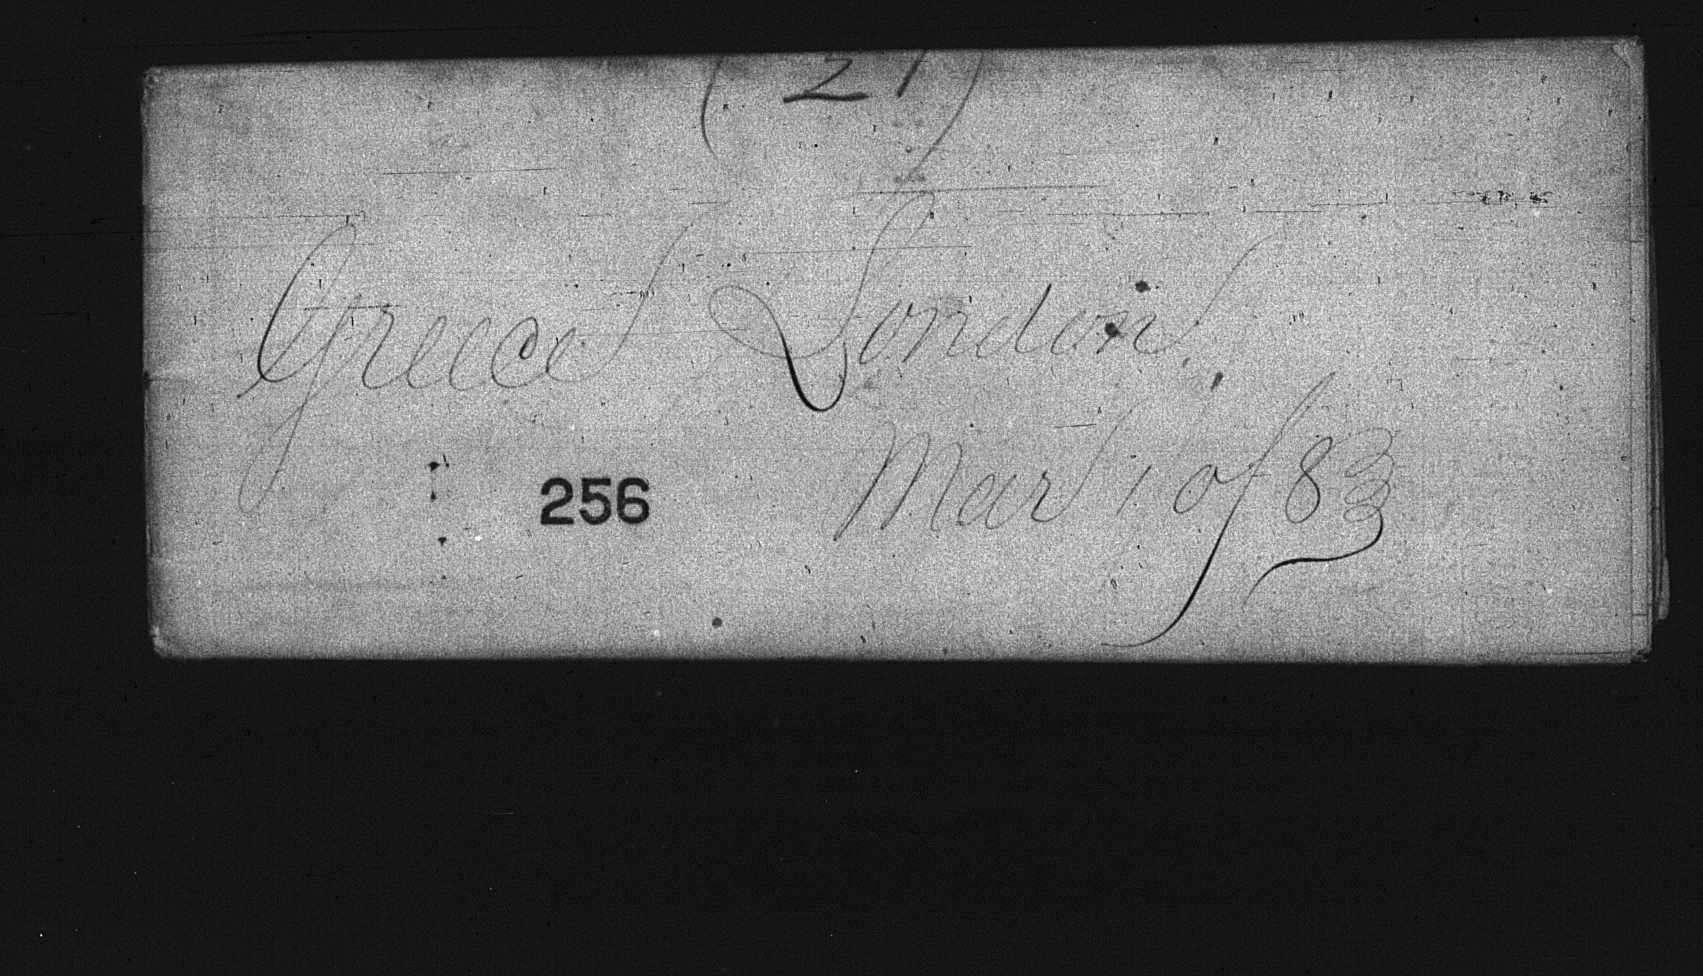 (21)
Greece London
256 Mar 1 of 83